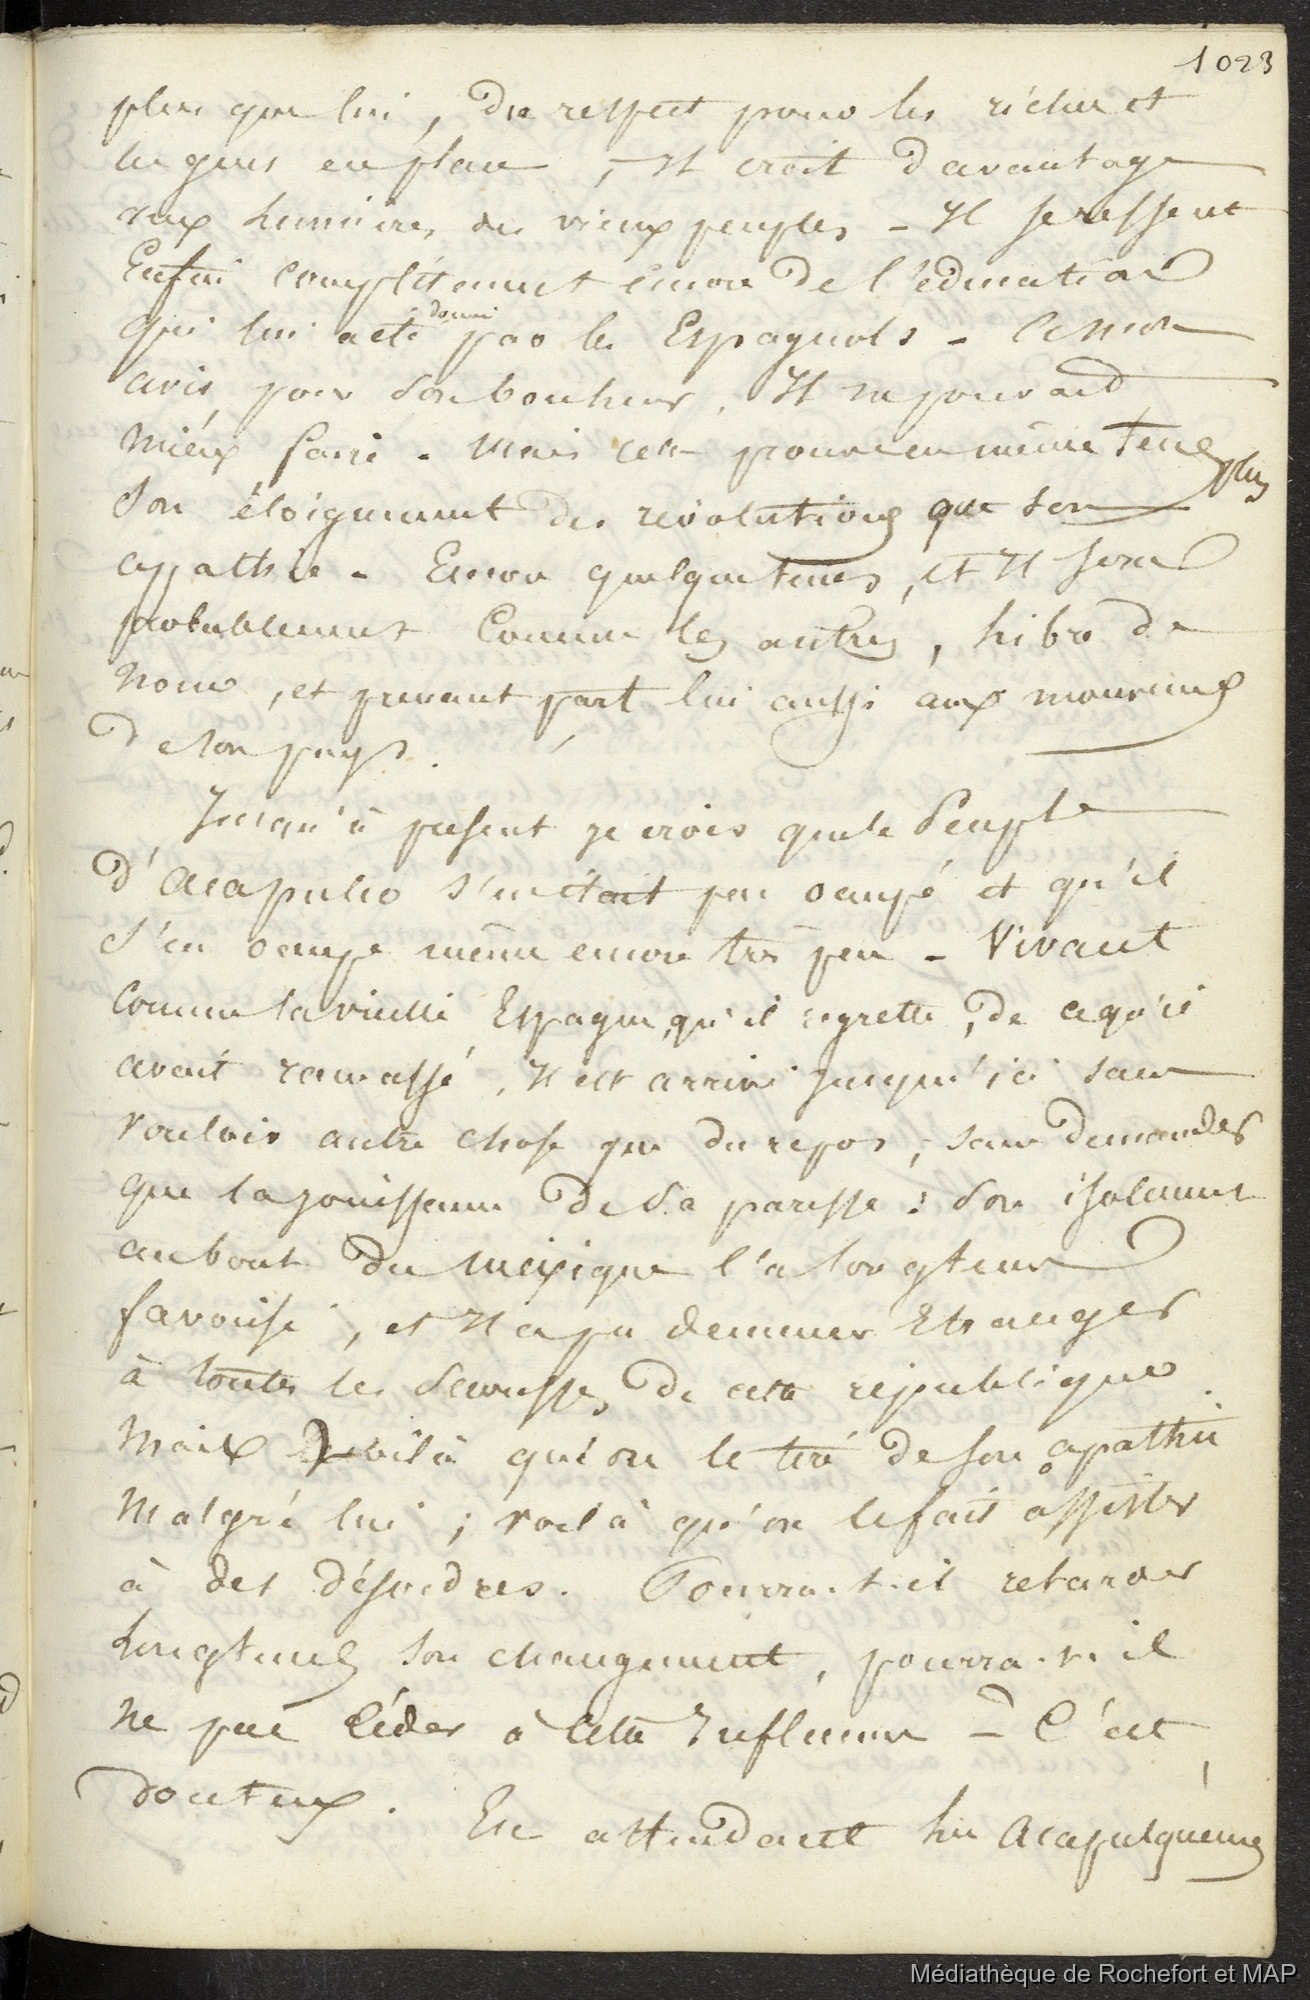 1023
plus que lui, du respect pour les riches et
les gens en place, - Il croit d'avantage
aux lumières des vieux peuples - Il se ressent
Enfin complétement encore de l'éducation
donné
qui lui a été par les Espagnols - A mon
avis, pour son bonheur, Il ne pouvait
mieux faire - mais cela prouve en même tems plus
son éloignement des révolutions que son
appathie - Encore quelque tems, et Il sera
probablement Comme les autres, libre de
nom, et prenant part lui aussi aux mouvems
de son pays.
Jusqu'à présent je crois que le Peuple
d'Acapulco s'en était peu occupé et qu'il
s'en occupe même encore très peu - Vivant
comme la vieille Espagne, qu'il regrette, de ce qu'il
avait ramassé, Il est arrivé jusqu'ici sans
vouloir autre chose que du repos, sans demander
que la jouissance de sa paresse : son isolement
au bout du mexique l'a longtems
favorisé, et Il a pu demeurer Etranger
à toutes les secousses de cette république.
Mais voilà qu'on le tire de son apathie
malgré lui ; voilà qu'on le fait assister
à des désordres. Pourra-t-il retarder
longtems son changement, pourra-t-il
ne pas Céder à Cette Influence - C'est
douteux. En attendant les Acapulquéens
Médiathèque de Rochefort et MAP